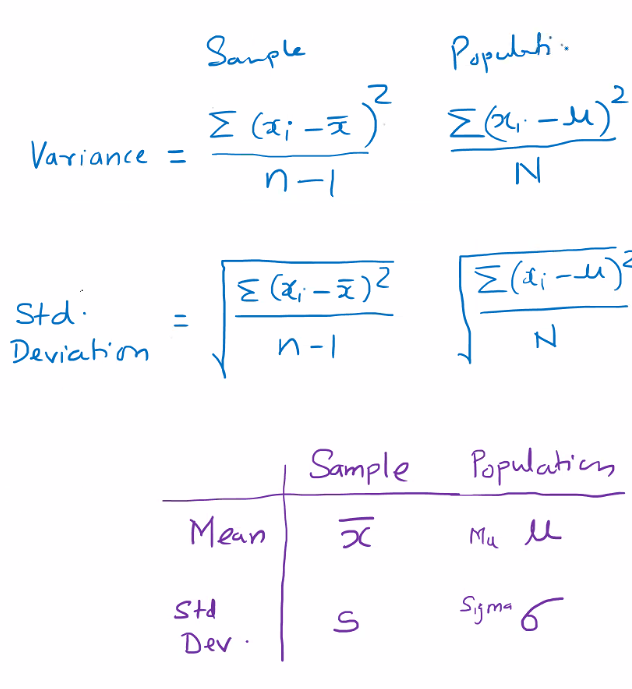 Sample Populati.
Variance = Σ (xi - x̄)² / n-1 Σ(xi - μ)² / N
Std. Deviation = √ Σ (xi - x̄)² / n-1 √ Σ(xi - μ)² / N
Sample Population
Mean x̄ Mu μ
Std Dev. S Sigma σ